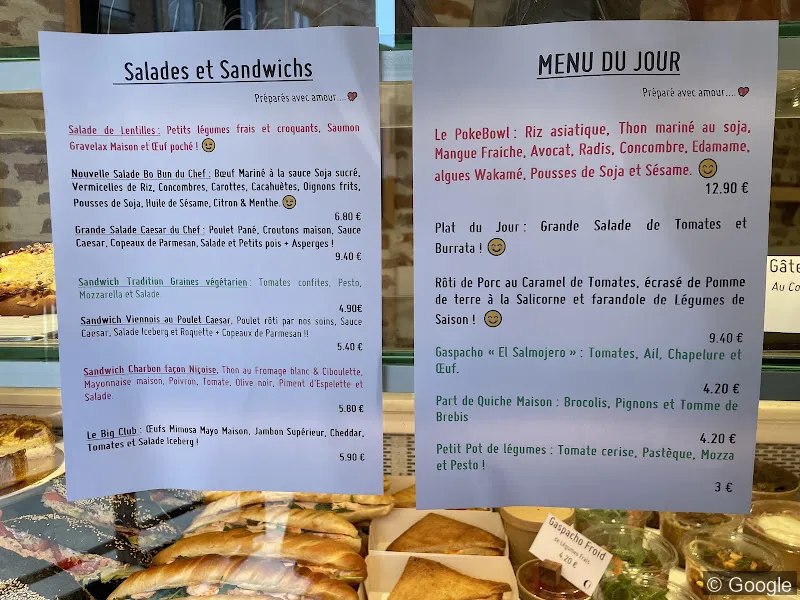 Salades et Sandwichs
Préparés avec amour....
Salade de Lentilles : Petits légumes frais et croquants, Saumon
Gravelax Maison et Œuf poché !
Nouvelle Salade Bo Bun du Chef : Bœuf Mariné à la sauce Soja sucré,
Vermicelles de Riz, Concombres, Carottes, Cacahuètes, Oignons frits,
Pousses de Soja, Huile de Sésame, Citron & Menthe.
6.80 €
Grande Salade Caesar du Chef : Poulet Pané, Croutons maison, Sauce
Caesar, Copeaux de Parmesan, Salade et Petits pois + Asperges !
9.40 €
Sandwich Tradition Graines végétarien : Tomates confites, Pesto,
Mozzarella et Salade.
4.90€
Sandwich Viennois au Poulet Caesar, Poulet rôti par nos soins, Sauce
Caesar, Salade Iceberg et Roquette + Copeaux de Parmesan !!
5.40 €
Sandwich Charbon façon Niçoise, Thon au Fromage blanc & Ciboulette,
Mayonnaise maison, Poivron, Tomate, Olive noir, Piment d'Espelette et
Salade.
5.80 €
Le Big Club : Œufs Mimosa Mayo Maison, Jambon Supérieur, Cheddar,
Tomates et Salade Iceberg !
5.90 €
MENU DU JOUR
Préparé avec amour....
Le PokeBowl : Riz asiatique, Thon mariné au soja,
Mangue Fraiche, Avocat, Radis, Concombre, Edamame,
algues Wakamé, Pousses de Soja et Sésame.
12.90 €
Plat du Jour : Grande Salade de Tomates et
Burrata !
Rôti de Porc au Caramel de Tomates, écrasé de Pomme
de terre à la Salicorne et farandole de Légumes de
Saison !
9.40 €
Gaspacho « El Salmojero » : Tomates, Ail, Chapelure et
Œuf.
4.20 €
Part de Quiche Maison : Brocolis, Pignons et Tomme de
Brebis
4.20 €
Petit Pot de légumes : Tomate cerise, Pastèque, Mozza
et Pesto !
3 €
Gâte
Au Co
Gaspacho Froid
de Légumes Frais
4.20 €
© Google